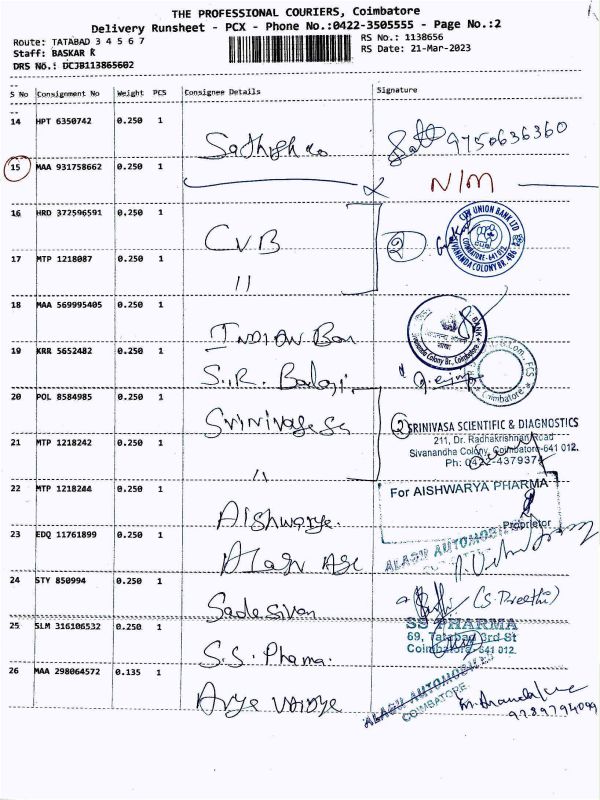 THE PROFESSIONAL COURIERS, Coimbatore
Delivery Runsheet - PCX - Phone No.:0422-3505555 - Page No.:2
Route: TATABAD 3 4 5 6 7
RS No.: 1138656
Staff: BASKAR R
RS Date: 21-Mar-2023
DRS No.: DCJB113865602
S No Consignment No Weight PCS Consignee Details Signature
14 HPT 6350742 0.250 1
9750636360
15 MAA 931758662 0.250 1 N/M
16 HRD 372596591 0.250 1 CVB 2
CITY UNION BANK LTD
COIMBATORE-641 012.
SIVANANDA COLONY BR. 486
17 MTP 1218087 0.250 1 11
18 MAA 569995405 0.250 1 INDIAN Ban
BANK
Sivananda Colony Br., Coimbatore
19 KRR 5652482 0.250 1 S.R. Balaji
Coimbatore
20 POL 8584985 0.250 1 Srinivasa Sc 2
SRINIVASA SCIENTIFIC & DIAGNOSTICS
211, Dr. Radhakrishnan Road
Sivanandha Colony, Coimbatore-641 012.
21 MTP 1218242 0.250 1 11
Ph: 0422-437937
22 MTP 1218244 0.250 1 Aishwarya
For AISHWARYA PHARMA
Proprietor
23 EDQ 11761899 0.250 1
ALAGU AUTOMOBILES
24 STY 850994 0.250 1 Sadasivan
(S. Preethi)
25 SLM 316106532 0.250 1 S.S. Pharma.
SS PHARMA
69, Tatabad 3rd St
Coimbatore-641 012.
26 MAA 298064572 0.135 1 Arya Vaidya
ALAGU AUTOMOBILES
COIMBATORE
9789794099